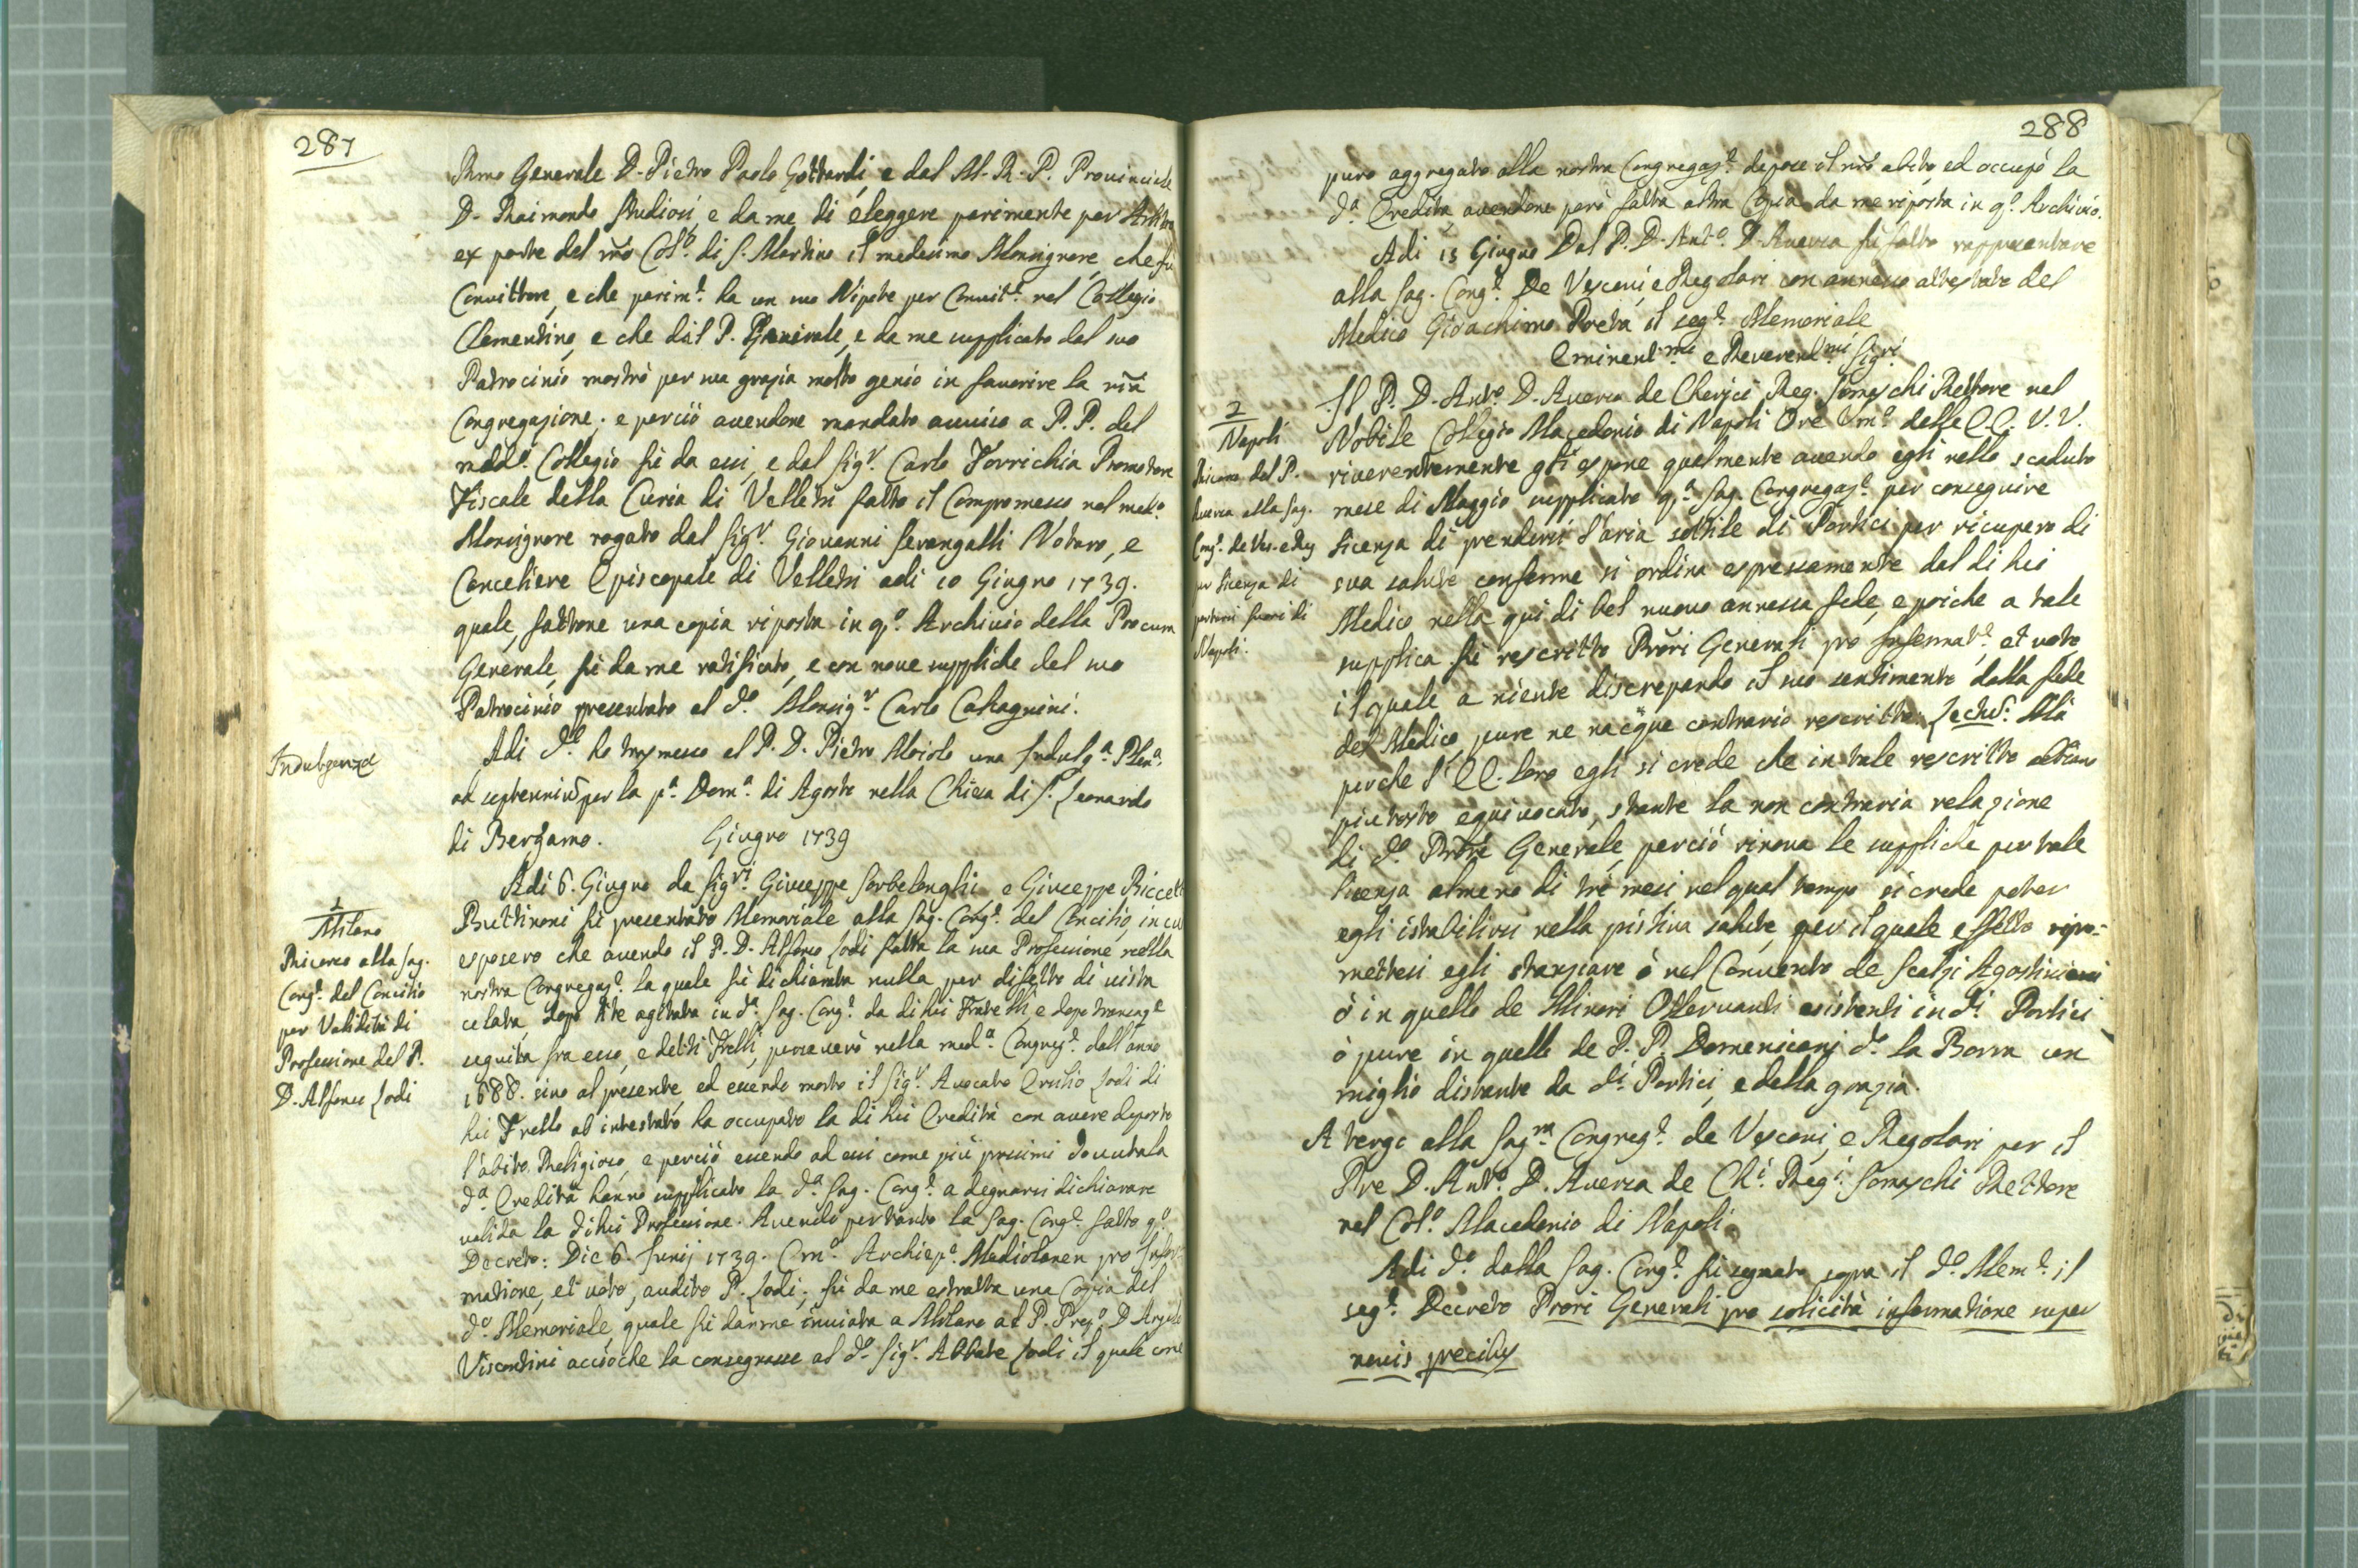 287
Rmo Generale D. Pietro Paolo Gottardi, e dal M. R. P. Provinciale
D. Raimondo Studiosi e da me di eleggere parimente per Arbitro
ex parte del nr̃o Col.º di S. Martino il medesimo Monsignore, che fù
Convittore, e che parim.te ha un suo Nipote per Convit.e nel Collegio
Clementino, e che dal P. Generale, e da me supplicato del suo
Patrocinio mostrò per sua grazia molto genio in favorire la nr̃a
Congregazione; e perciò avendone mandato avviso a P. P. del
med.º Collegio fù da essi, e dal Sig.r Carlo Torrichia Promotore
Fiscale della Curia di Velletri fatto il Compromesso nel med.º
Monsignore rogato dal Sig.r Giovanni Serangalli Notaro, e
Cancelliere Episcopale di Velletri adi 10 Giugno 1739.
quale, fattone una copia riposta in q.º Archivio della Procura
Generale, fù da me ratificato, e con nove suppliche del suo
Patrocinio presentato al d.º Monsig.r Carlo Calcagnini.
Indulgenza
Adi d.º ho trasmesso al P. D. Pietro Moiolo una Indulg.a Plen.a
ad septenniũ per la p.a Dom.a di Agosto nella Chiesa di S. Leonardo
di Bergamo. Giugno 1739
Adi 6. Giugno da Sig.ri Giuseppe Sorbelonghi e Giuseppe
1
Milano
Ricorso alla Sag.
Cong.e del Concilio
per Validità di
Professione del P.
D. Alfonso Lodi
Buttinoni fù presentato Memoriale alla Sag. Cong.e del Concilio, in cui
esposero che avendo il P. D. Alfonso Lodi fatta la sua Professione nella
nostra Congregaz.e la quale fù dichiarata nulla per difetto di
celata, dopo lite agitata in d.a Sag. Cong.e da di lui Fratelli, e dopo transaz.e
seguita fra esso, e detti Frelli, perseverò nella med.a Congreg.e dall'anno
1688. sino al presente, ed essendo morto il Sig.r Avocato Lodi di
lui Frello ab intestato, ha occupato la di lui Eredità con avere deposto
l'abito Religioso, e perciò essendo ad essi come più prossimi dovuta la
d.a Eredità hanno supplicato la d.a Sag. Cong.e a degnarsi dichiarare
valida la di lui Professione. Avendo pertanto la Sag. Cong.e fatto q.º
Decreto: Die 6. Junij 1739. Em.º Archiep.º Mediolanen pro Infor-
matione, et voto, audito P. Lodi; fù da me estratta una Copia del
d.º Memoriale, quale fù da me inviata a Milano al P. Prep.º D.
Viscontini acciòche la consegnasse al d.º Sig.r Abbate Lodi il quale come
288
puro aggregato alla nostra Congregaz.e depose il nr̃o abito, ed occupò la
d.a Eredità, avendone però fatta altra Copia da me riposta in q.º Archivio.
Adi 13 Giugno Dal P. D. Ant.º D. Aversa fù fatto rappresentare
alla Sag. Cong.e De Vescovi, e Regolari con annesso attestato del
Medico Gioachimo Poeta il seg.e Memoriale
Eminent.mi e Reverend.mi Sig.ri
2
Napoli
Ricorso del P.
Aversa alla Sag.
Cong.e de Ves. e Reg
per licenza di
portarsi fuori di
Napoli.
Il P. D. Ant.º D. Aversa de Cherici Reg. Somaschi Rettore nel
Nobile Collegio Macedonio di Napoli Ore Um.º delle EE. V. V.
riverentemente gli espone qualmente avendo egli nello scaduto
mese di Maggio supplicato q.a Sag. Congregaz.e per conseguire
licenza di prendersi l'aria sottile di Portici per ricupero di
sua salute conforme si ordina espressamente dal di lui
Medico nella qui di bel nuovo annessa fede, e poiche a tale
supplica fù rescritto Prori Generali pro Informat.e, et voto
il quale a niente discrepando il suo sentimento dalla fede
del Medico, pure ne nacque contrario rescritto: Lectũ: Mà
perche l'EE. loro egli si crede che in tale rescritto
piutosto equivocato, stante la non contraria relazione
di d.º Prore Generale, perciò rinova le suppliche per tale
licenza almeno di trè mesi nel qual tempo si crede poter
egli istabilirsi nella pistina salute, per il quale effetto ripro-
mettesi egli stanziare ò nel Convento de Scalzi Agostiniani
ò in quello de Minori Osservanti esistenti in d.i Portici
ò pure in quello de P. P. Domenicani d.º la Barra un
miglio distante da d.i Portici, e della grazia.
A tergo alla Sag.ra Congreg.e de Vescovi, e Regolari per il
Pre D. Ant.º D. Aversa de Ch.i Reg.i Somaschi Rettore
nel Col.º Macedonio di Napoli.
Adi d.º dalla Sag. Cong.e fù segnato sopra il d.º Mem.e il
seg.e Decreto Prori Generali pro solicita informatione super
novis precibus